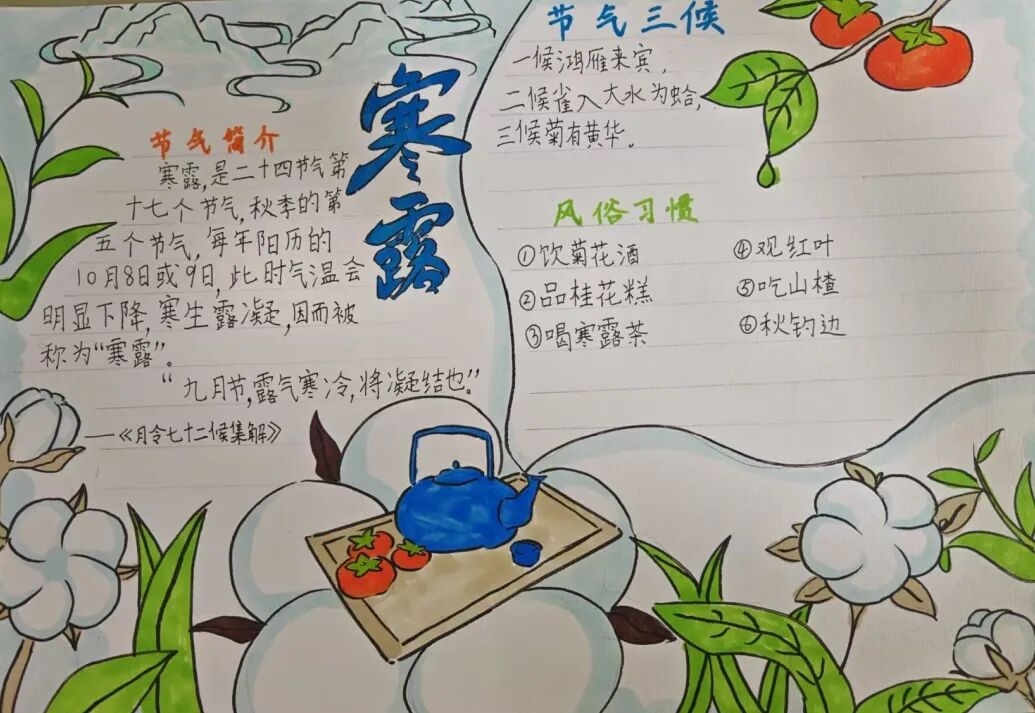 寒露
节气简介
寒露,是二十四节气第
十七个节气,秋季的第
五个节气,每年阳历的
10月8日或9日,此时气温会
明显下降,寒生露凝,因而被
称为“寒露”。
“九月节,露气寒冷,将凝结也。”
——《月令七十二候集解》
节气三候
一候鸿雁来宾,
二候雀入大水为蛤,
三候菊有黄华。
风俗习惯
①饮菊花酒
②品桂花糕
③喝寒露茶
④观红叶
⑤吃山楂
⑥秋钓边